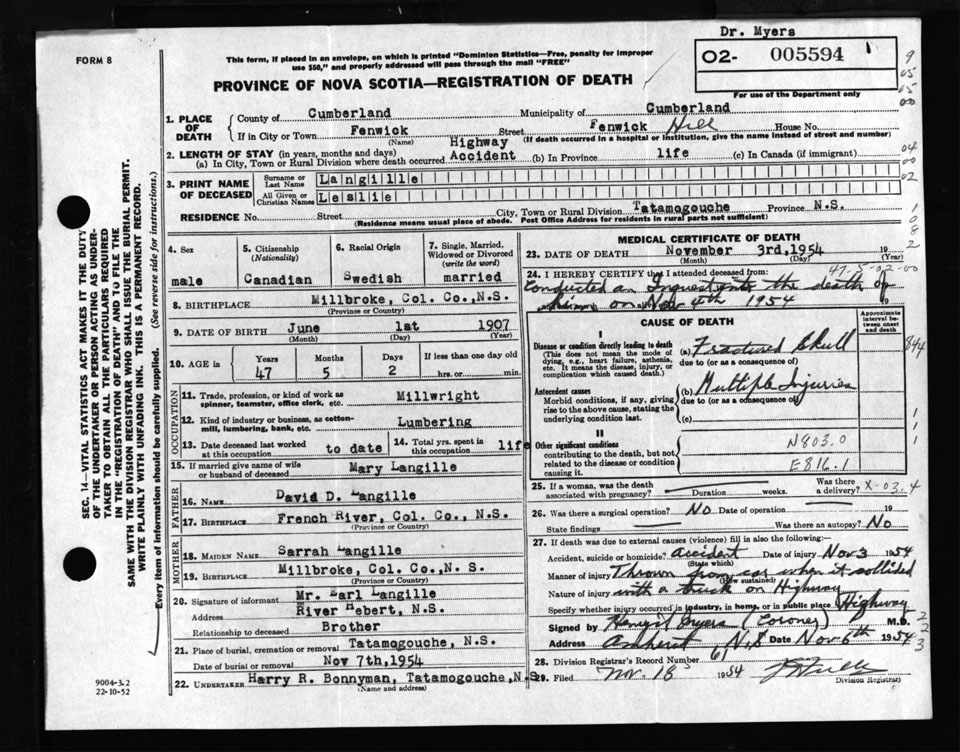 Dr. Myers
FORM 8
This form, if placed in an envelope, on which is printed "Dominion Statistics—Free, penalty for improper
use $50," and properly addressed will pass through the mail "FREE"
02- 005594
For use of the Department only
PROVINCE OF NOVA SCOTIA—REGISTRATION OF DEATH
1. PLACE OF DEATH
County of Cumberland Municipality of Cumberland
If in City or Town Fenwick Street Fenwick Hill House No.
(Name) (If death occurred in a hospital or institution, give the name instead of street and number)
2. LENGTH OF STAY (in years, months and days) Highway
(a) In City, Town or Rural Division where death occurred Accident (b) In Province life (c) In Canada (if immigrant)
3. PRINT NAME OF DECEASED
Surname or Last Name Langille
All Given or Christian Names Leslie
RESIDENCE No. Street City, Town or Rural Division Tatamogouche Province N.S.
(Residence means usual place of abode. Post Office Address for residents in rural parts not sufficient)
4. Sex male
5. Citizenship (Nationality) Canadian
6. Racial Origin Swedish
7. Single, Married, Widowed or Divorced (write the word) married
8. BIRTHPLACE Millbroke, Col. Co., N.S.
(Province or Country)
9. DATE OF BIRTH June 1st 1907
(Month) (Day) (Year)
10. AGE in Years 47 Months 5 Days 2 If less than one day old
hrs. or min.
OCCUPATION
11. Trade, profession, or kind of work as spinner, teamster, office clerk, etc. Millwright
12. Kind of industry or business, as cotton-mill, lumbering, bank, etc. Lumbering
13. Date deceased last worked at this occupation to date 14. Total yrs. spent in this occupation life
15. If married give name of wife or husband of deceased Mary Langille
FATHER
16. NAME David D. Langille
17. BIRTHPLACE French River, Col. Co., N.S.
(Province or Country)
MOTHER
18. MAIDEN NAME Sarrah Langille
19. BIRTHPLACE Millbroke, Col. Co., N. S.
(Province or Country)
20. Signature of informant Mr. Earl Langille
Address River Hebert, N.S.
Relationship to deceased Brother
21. Place of burial, cremation or removal Tatamagouche, N.S.
Date of burial or removal Nov 7th, 1954
22. UNDERTAKER Harry R. Bonnyman, Tatamogouche, N.S.
(Name and address)
MEDICAL CERTIFICATE OF DEATH
23. DATE OF DEATH November 3rd, 1954 19
(Month) (Day) (Year)
47.5-02-00
24. I HEREBY CERTIFY that I attended deceased from:
Conducted an Inquest into the death of
him on Nov 4th 1954
CAUSE OF DEATH
Approximate interval between onset and death
I
Disease or condition directly leading to death
(This does not mean the mode of dying, e.g., heart failure, asthenia, etc. It means the disease, injury, or complication which caused death.)
(a) Fractured Skull
due to (or as a consequence of)
Antecedent causes
Morbid conditions, if any, giving rise to the above cause, stating the underlying condition last.
(b) Multiple Injuries
due to (or as a consequence of)
(c)
II
Other significant conditions
contributing to the death, but not related to the disease or condition causing it.
N803.0
E816.1
25. If a woman, was the death associated with pregnancy? Duration weeks. Was there a delivery? X-03.4
26. Was there a surgical operation? No Date of operation 19
State findings Was there an autopsy? No
27. If death was due to external causes (violence) fill in also the following:
Accident, suicide or homicide? Accident Date of injury Nov 3 1954
(State which)
Manner of injury Thrown from car when it collided
(How sustained)
Nature of injury with a truck on Highway
Specify whether injury occurred in industry, in home, or in public place Highway
Signed by (Coroner) M.D.
Address Amherst N.S. Date Nov 6th 1954
28. Division Registrar's Record Number
29. Filed Nov. 18 1954
Division Registrar
9004-3.2
22-10-52
SEC. 14—VITAL STATISTICS ACT MAKES IT THE DUTY
OF THE UNDERTAKER OR PERSON ACTING AS UNDER-
TAKER TO OBTAIN ALL THE PARTICULARS REQUIRED
IN THE "REGISTRATION OF DEATH" AND TO FILE THE
SAME WITH THE DIVISION REGISTRAR WHO SHALL ISSUE THE BURIAL PERMIT.
WRITE PLAINLY WITH UNFADING INK. THIS IS A PERMANENT RECORD.
Every item of Information should be carefully supplied. (See reverse side for instructions.)